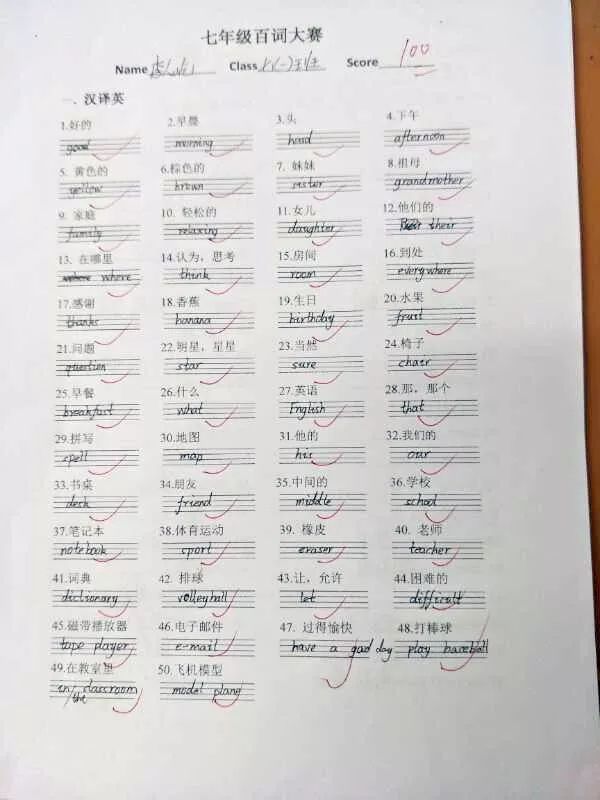 七年级百词大赛
Name Class 七(一)班 Score 100
一. 汉译英
1.好的 2.早晨 3.头 4.下午
good morning head afternoon
5. 黄色的 6.棕色的 7. 妹妹 8.祖母
yellow brown sister grandmother
9. 家庭 10. 轻松的 11.女儿 12.他们的
family relaxing daughter their
13. 在哪里 14.认为,思考 15.房间 16.到处
where think room everywhere
17.感谢 18.香蕉 19.生日 20.水果
thanks banana birthday fruit
21.问题 22.明星,星星 23.当然 24.椅子
question star sure chair
25.早餐 26.什么 27.英语 28.那,那个
breakfast what English that
29.拼写 30.地图 31.他的 32.我们的
spell map his our
33.书桌 34.朋友 35.中间的 36.学校
desk friend middle school
37.笔记本 38.体育运动 39. 橡皮 40. 老师
notebook sport eraser teacher
41.词典 42. 排球 43.让,允许 44.困难的
dictionary volleyball let difficult
45.磁带播放器 46.电子邮件 47. 过得愉快 48.打棒球
tape player e-mail have a good day play baseball
49.在教室里 50.飞机模型
in / classroom model plang
the